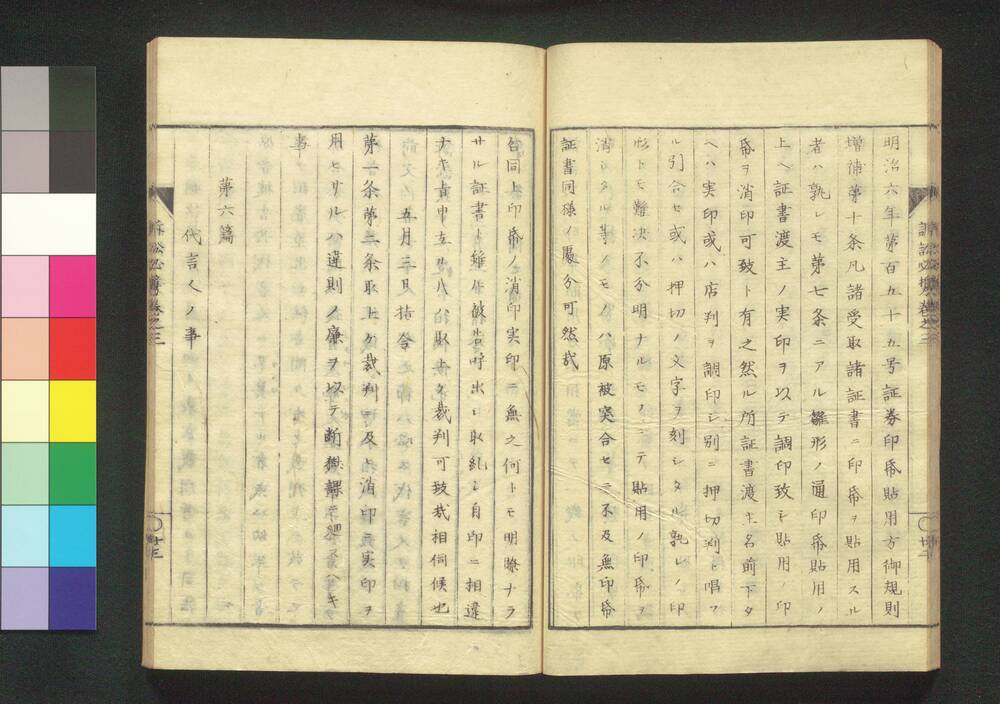 明治六年第百五十五号証券印帋貼用方御規則
増補第十条凡諸受取諸証書ニ印帋ヲ貼用スル
者ハ孰レモ第七条ニアル雛形ノ通印帋貼用ノ
上ヘ証書渡主ノ実印ヲ以テ調印致シ貼用ノ印
帋ヲ消印可致ト有之然ル所証書渡主名前下タ
ヘハ実印或ハ店判ヲ調印シ別ニ押切判ト唱フ
ル引合セ或ハ押切ノ文字ヲ刻シタル孰レノ印
形トモ難決不分明ナルモノニテ貼用ノ印帋ヲ
消シタル等ノモノハ原被突合セニ不及無印帋
証書同様ノ処分可然哉
合同上印帋ノ消印実印ニ無之何トモ明瞭ナラ
サル証書ト雖㞮被告呼出シ取糺シ自印ニ相違
ナキ旨申立ルハ取上ケ裁判可致哉相伺候也
五月三日指令
第一条第二条取上ケ裁判ニ及ヒ消印ニ実印ヲ
用ヒサルハ違則ノ廉ヲ以テ断獄課ニ廻スヘキ
事
第六篇
代言人ノ事
訴訟必携巻之三
廿三